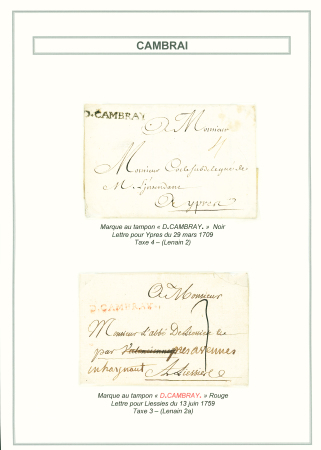 CAMBRAI
D.CAMBRAY
A Monsieur
4
Monsieur
A Ypres
Marque au tampon « D.CAMBRAY. » Noir
Lettre pour Ypres du 29 mars 1709
Taxe 4 – (Lenain 2)
A Monsieur
D.CAMBRAY
Monsieur l'abbé
par
en haynaut A Liessies
Marque au tampon « D.CAMBRAY. » Rouge
Lettre pour Liessies du 13 juin 1759
Taxe 3 – (Lenain 2a)